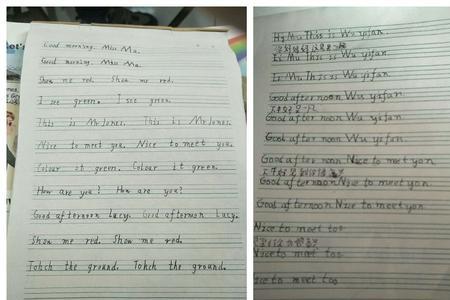 let's
Good morning. Miss Ma.
Good morning. Miss Ma.
Show me red. Show me red.
I see green. I see green.
This is Mr Jones. This is Mr Jones.
Nice to meet you. Nice to meet you.
Colour it green. Colour it green.
How are you? How are you?
Good afternoon Lucy. Good afternoon Lucy.
Show me red. Show me red.
Tohch the ground. Tohch the ground.
Mu This is Wu yifan.
Mu This is Wu yifan.
Mu This is Wu yifan.
Good after noon Wu yifan.
Good after noon Wu yifan.
Good after noon Wu yifan.
Good afternoon Nice to meet yon
Good afternoon Nice to meet yon
Good afternoon Nice to meet yon
Nice to meet too
Nice to meet too
ice to meet too